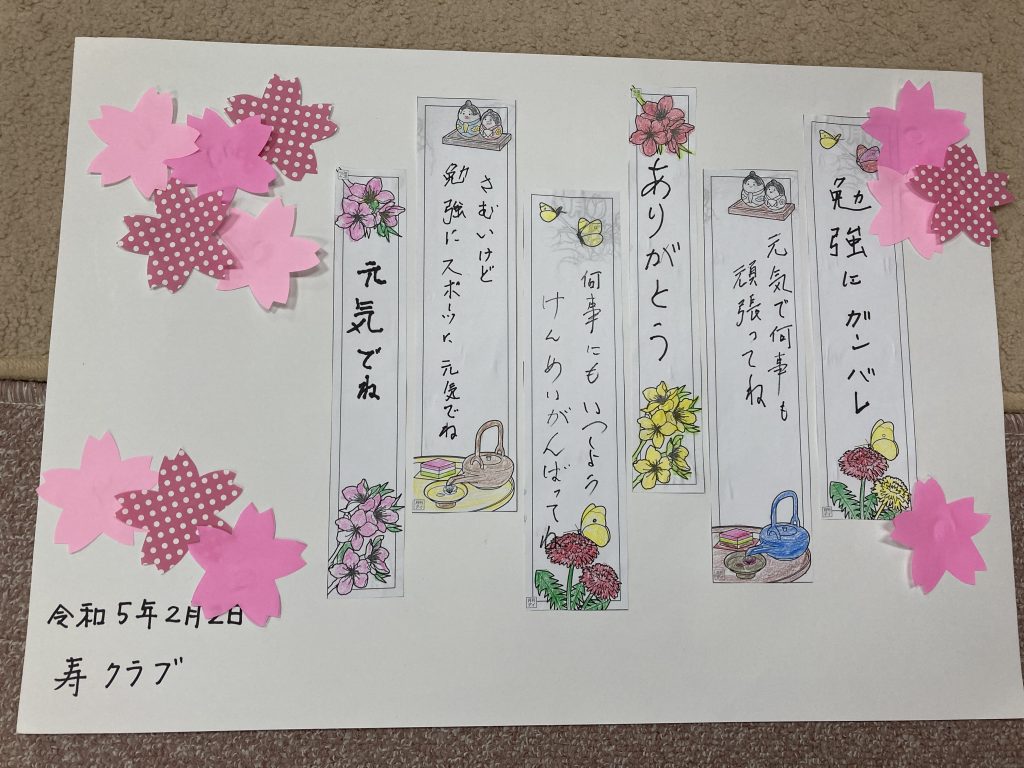 勉強に ガンバレ
元気で何事も
頑張ってね
ありがとう
何事にも いっしょう
けんめいがんばってね
さむいけど
勉強に スポーツに 元気でね
元気でね
令和5年2月2日
寿クラブ